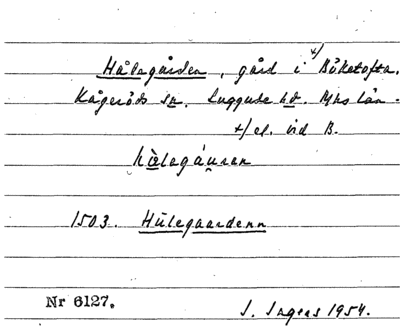 Hålegården, gård i x/ Böketofta,
Kågeröds sn. Luggude hd. Mhs län.
x/ el. vid B.
hȧlagáu̯ren
1503. Hülegaardenn
Nr 6127. J. Ingers 1954.